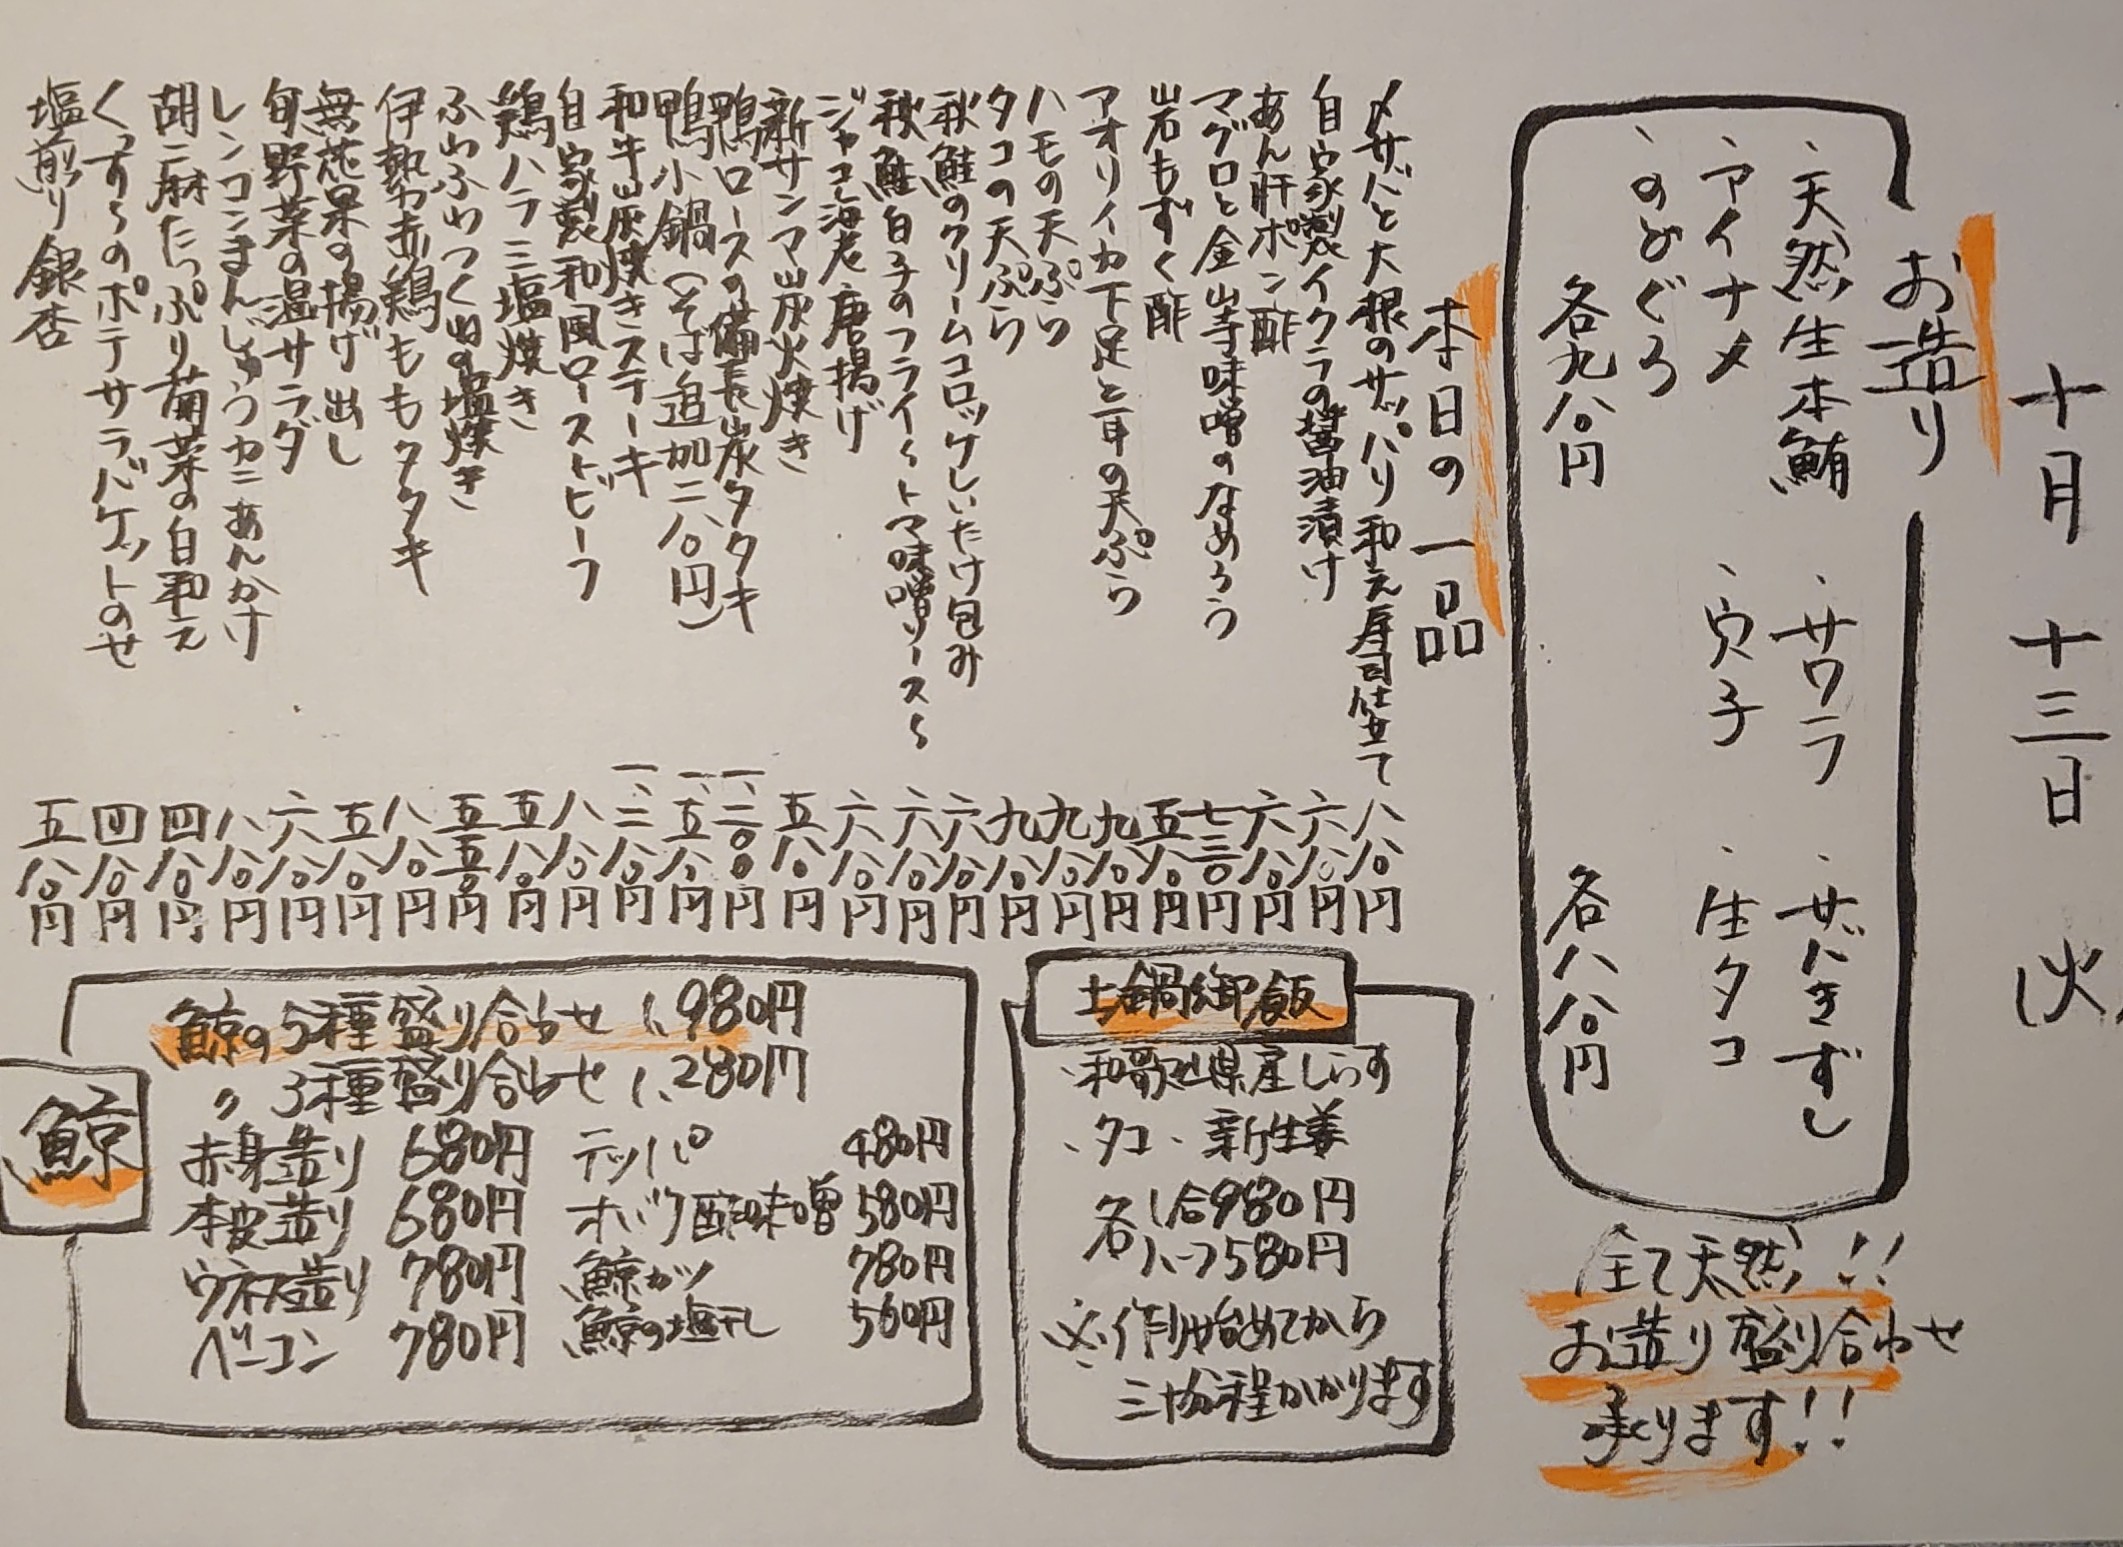 十月十三日 火
お造り
、天然生本鮪 、サワラ 、サバきずし
、アイナメ 、穴子 、生タコ
、のどぐろ
各九八〇円 各八八〇円
全て天然!!
お造り盛り合わせ
承ります!!
本日の一品
〆サバと大根のサッパリ和え寿司仕立て 八八〇円
自家製イクラの醤油漬け 六八〇円
あん肝ポン酢 六八〇円
マグロと金山寺味噌のなめろう 七三〇円
岩もずく酢 五八〇円
アオリイカ下足と耳の天ぷら 九八〇円
ハモの天ぷら 九八〇円
タコの天ぷら 九八〇円
秋鮭のクリームコロッケしいたけ包み 六八〇円
秋鮭白子のフライ〜トマト味噌ソース〜 六八〇円
ジャコ海老唐揚げ 六八〇円
新サンマ炭火焼き 五八〇円
鴨ロースの備長炭タタキ 一、二〇〇円
鴨小鍋(そば追加二八〇円) 一、五八〇円
和牛炭焼きステーキ 一、二八〇円
自家製和風ローストビーフ 八八〇円
鶏ハラミ塩焼き 五八〇円
ふわふわつくねの塩焼き 五五〇円
伊勢赤鶏ももタタキ 八八〇円
無花果の揚げ出し 五八〇円
旬野菜の温サラダ 六八〇円
レンコンまんじゅうカニあんかけ 八八〇円
胡麻たっぷり菊菜の白和え 四八〇円
くんすけのポテサラバケットのせ 四八〇円
塩煎り銀杏 五八〇円
土鍋御飯
、和歌山県産しらす
、タコ 、新生姜
各 1合980円
ハーフ580円
※作り始めてから
三十分程かかります
鯨
鯨の5種盛り合わせ 1、980円
〃 3種盛り合わせ 1、280円
赤身造り 680円 テッパ 480円
本皮造り 680円 オバケ酢味噌 580円
ウネス造り 780円 鯨カツ 780円
ベーコン 780円 鯨の塩干し 560円